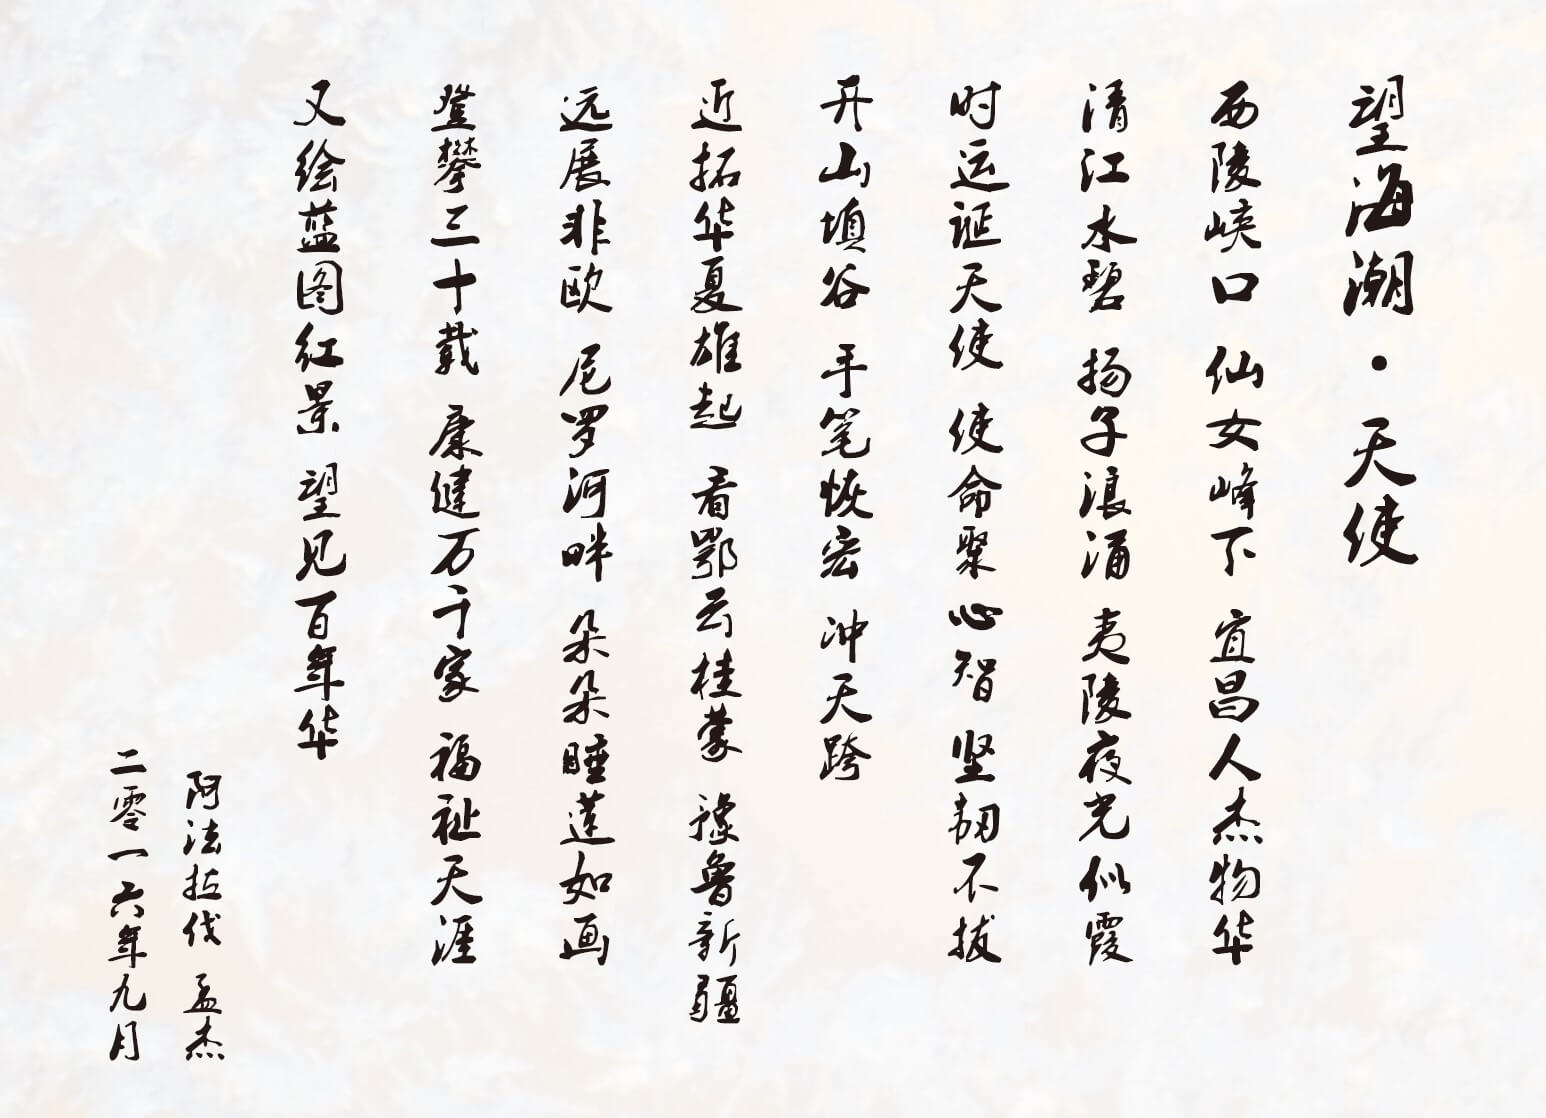 望海潮·天使
西陵峡口 仙女峰下 宜昌人杰物华
清江水碧 扬子浪涌 夷陵夜光似霞
时运诞天使 使命聚心智 坚韧不拔
开山填谷 手笔恢宏 冲天跨
近拓华夏雄起 看鄂云桂蒙 豫鲁新疆
远展非欧 尼罗河畔 朵朵睡莲如画
登攀三十载 康健万千家 福祉天涯
又绘蓝图红景 望见百年华
阿法拉伐 孟杰
二零一六年九月